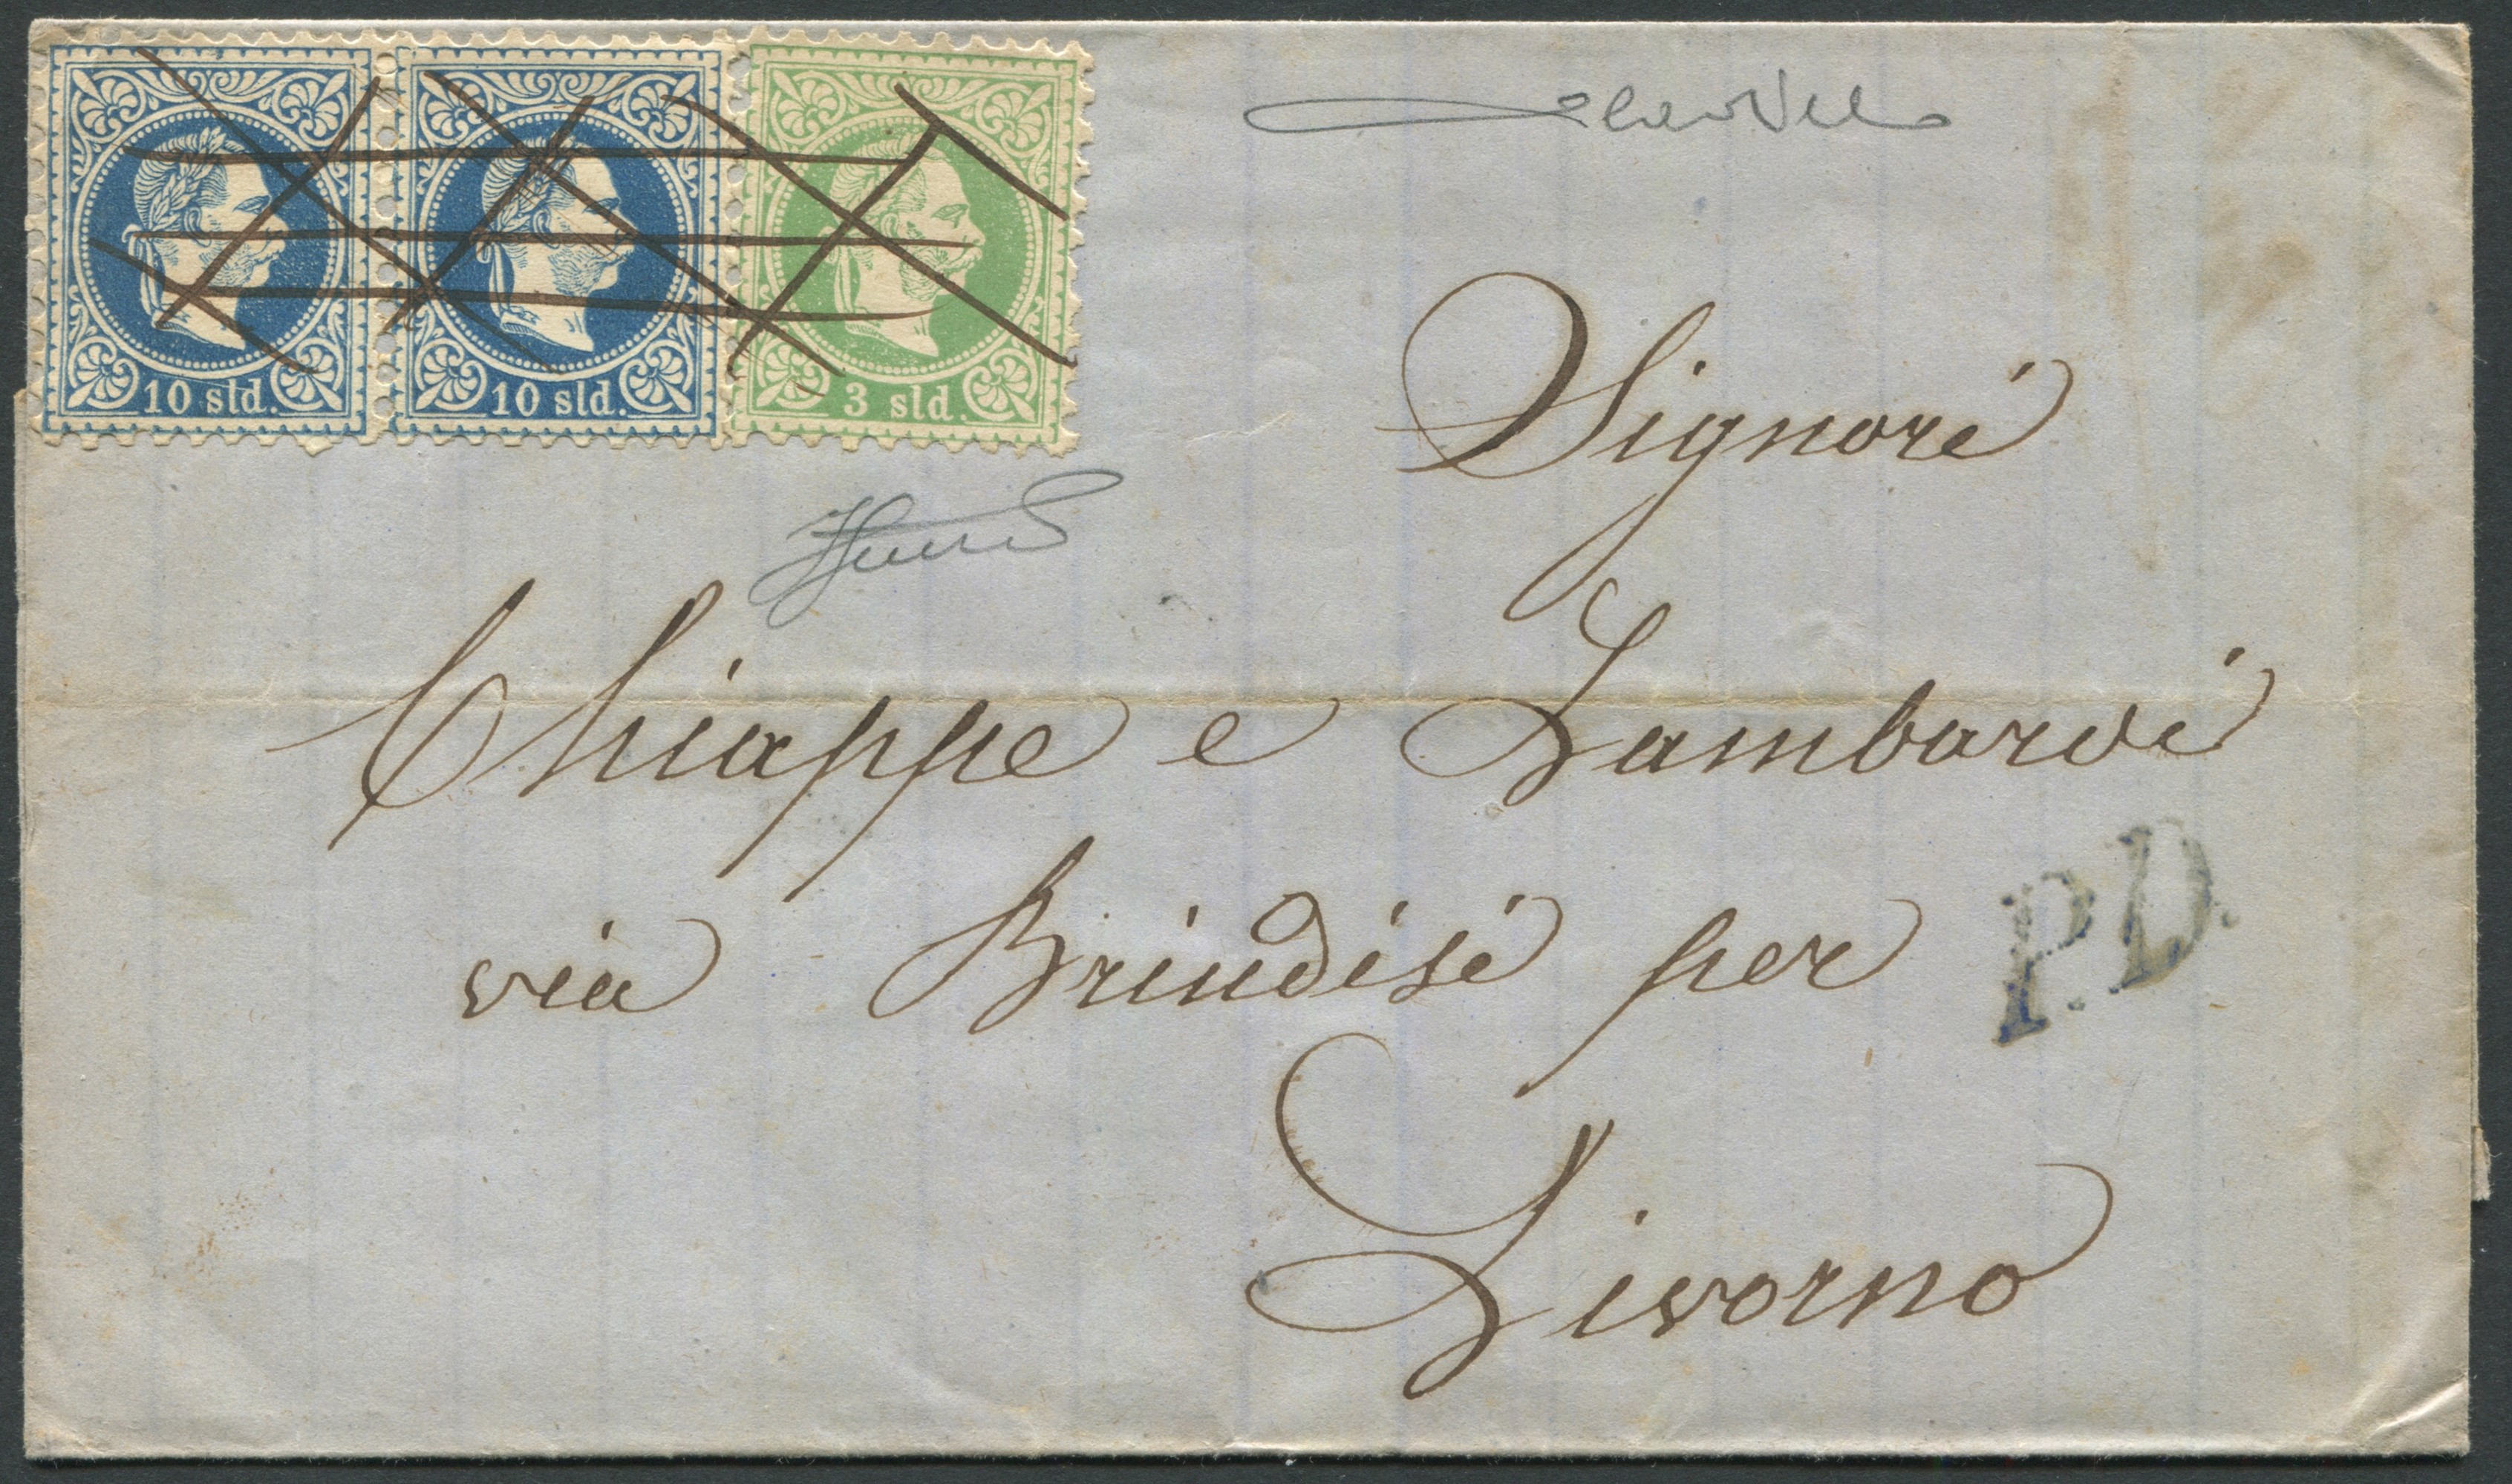 10 sld. 10 sld. 3 sld.
Signori
Chiappe e Lambardi
via Brindisi per
P.D.
Livorno